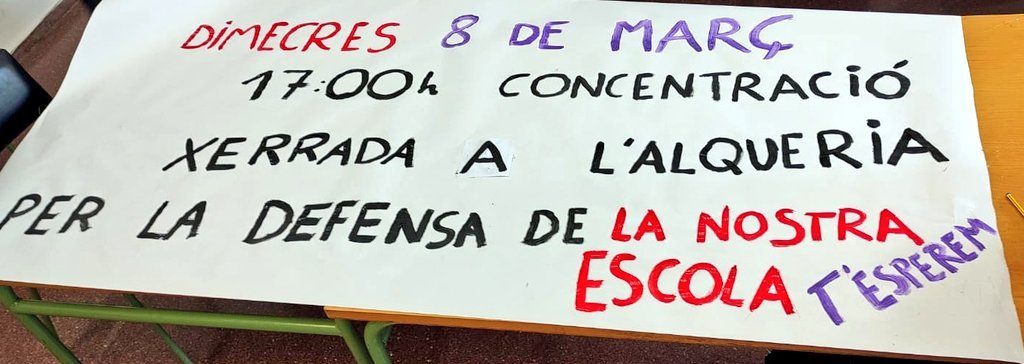 DiMECRES 8 DE MARÇ
17:00h CONCENTRACiÓ
XERRADA A L'ALQUERiA
PER LA DEFENSA DE LA NOSTRA
ESCOLA T'ESPEREM